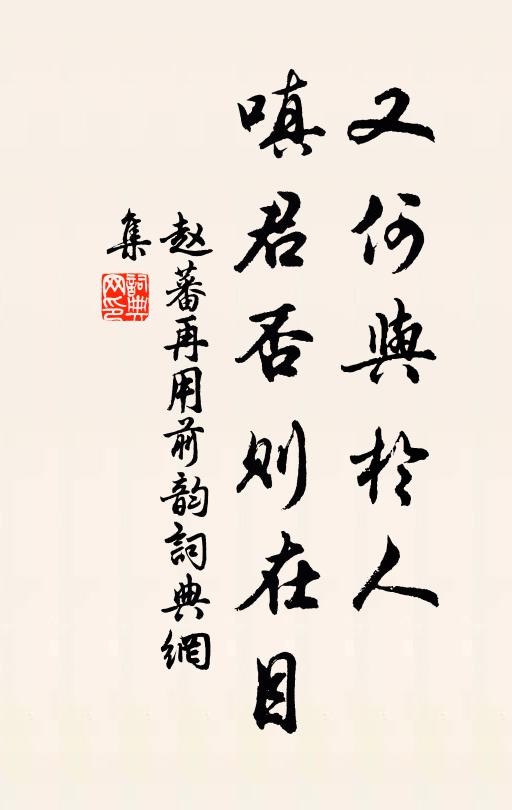 又何與於人
嗔君否則在目
赵蕃再用前韵詞典網
集
詞典
网印